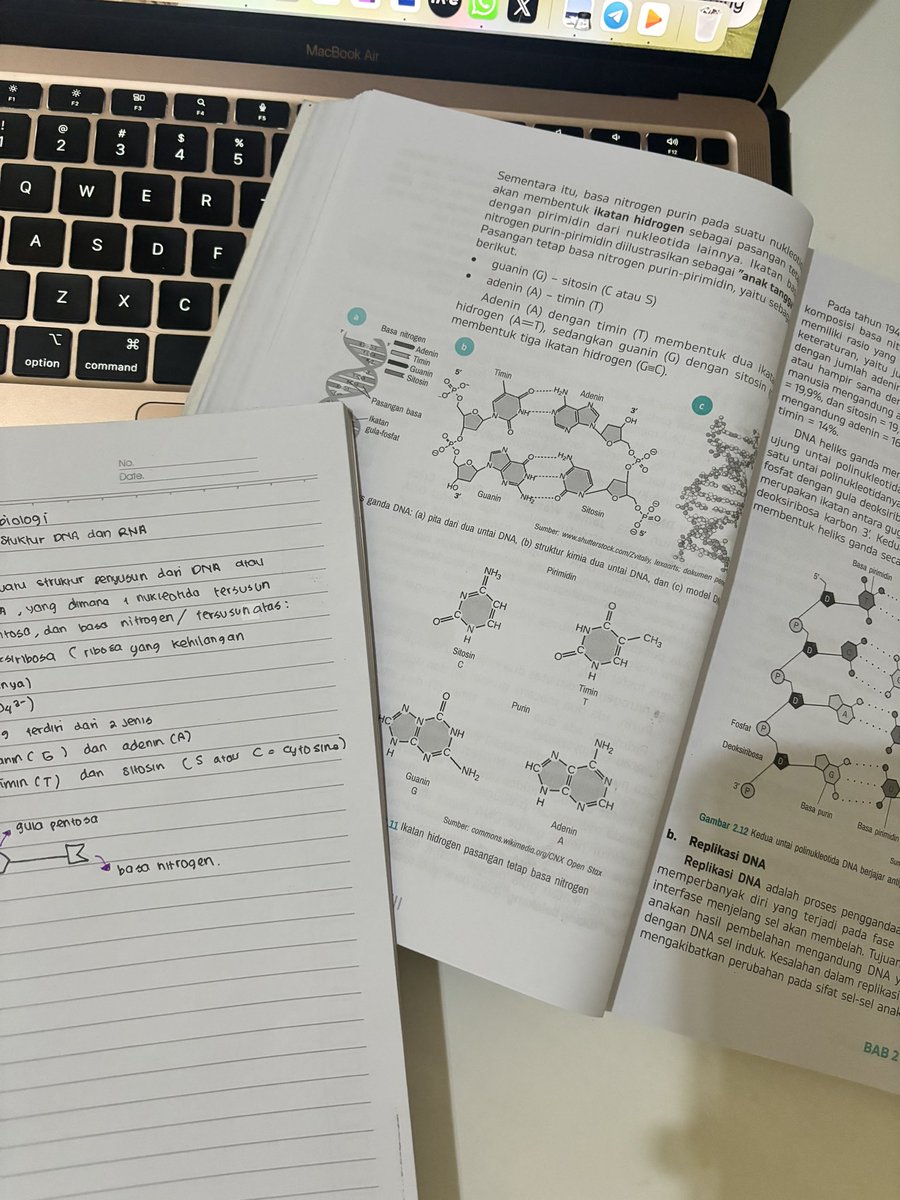 MacBook Air
F1
F2
F3
F4
F5
F12
!
1
@
2
#
3
$
4
%
5
Q
W
E
R
A
S
D
F
Z
X
C
option
⌘
command
Sementara itu, basa nitrogen purin pada suatu
akan membentuk ikatan hidrogen sebagai pasangan
dengan pirimidin dari nukleotida lainnya. Ikatan
nitrogen purin-pirimidin diilustrasikan sebagai "anak
Pasangan tetap basa nitrogen purin-pirimidin, yaitu
berikut.
• guanin (G) – sitosin (C atau S)
• adenin (A) – timin (T)
Adenin (A) dengan timin (T) membentuk dua
hidrogen (A=T), sedangkan guanin (G) dengan sitosin
membentuk tiga ikatan hidrogen (G≡C).
a
Basa nitrogen
Adenin
Timin
Guanin
Sitosin
Pasangan basa
Ikatan
gula-fosfat
b
5'
Timin
Adenin
3'
OH
H₂N
NH
HO
3'
Guanin
Sitosin
5'
c
Sumber: www.shutterstock.com/Zvitaliy,
ganda DNA: (a) pita dari dua untai DNA, (b) struktur kimia dua untai DNA, dan (c) model
Pirimidin
NH₃
N
CH
CH
O
N
H
Sitosin
C
O
HN
C
C
CH₃
O
CH
N
H
Timin
T
Purin
O
N
NH
N
H
NH₂
Guanin
G
NH₂
HC
N
N
CH
N
H
Adenin
A
Sumber: commons.wikimedia.org/CNX Open Stax
11 Ikatan hidrogen pasangan tetap basa nitrogen
Pada tahun
komposisi basa
memiliki rasio yang
keteraturan, yaitu
dengan jumlah
atau hampir sama
manusia mengandung
= 19,9%, dan sitosin =
mengandung adenin =
timin = 14%.
DNA heliks ganda
ujung untai
satu untai
fosfat dengan gula
merupakan ikatan antara
deoksiribosa karbon 3'.
membentuk heliks ganda
Basa pirimidin
5'
D
P
D
G
P
D
A
P
D
G
3'
P
Fosfat
Deoksiribosa
Basa purin
Basa pirimidin
Gambar 2.12 Kedua untai polinukleotida DNA berjajar
b. Replikasi DNA
Replikasi DNA adalah proses
memperbanyak diri yang terjadi pada fase
interfase menjelang sel akan membelah.
anakan hasil pembelahan mengandung DNA
dengan DNA sel induk. Kesalahan dalam replikasi
mengakibatkan perubahan pada sifat sel-sel
BAB 2
No.
Date.
biologi
Stuktur DNA dan RNA
struktur penyusun dari DNA atau
, yang dimana 1 nukleotida tersusun
, dan basa nitrogen / tersusun atas:
( ribosa yang kehilangan
nya)
terdiri dari 2 jenis
(G) dan adenin (A)
(T) dan sitosin (S atau C = cytosine)
gula pentosa
basa nitrogen.